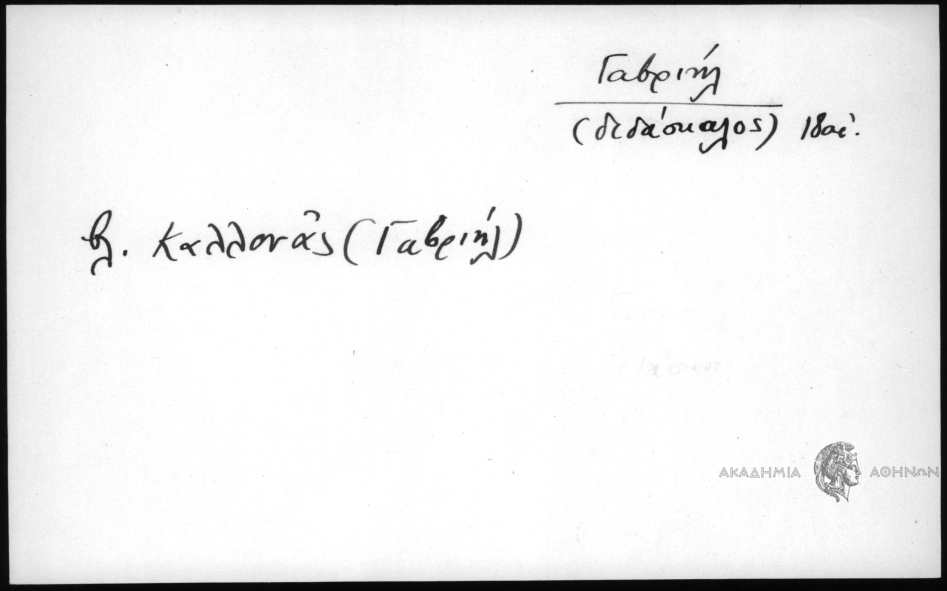 Γαβριήλ
(διδάσκαλος) 18ος αἰ.
βλ. Καλλονᾶς (Γαβριήλ)
ΑΚΑΔΗΜΙΑ ΑΘΗΝΩΝ